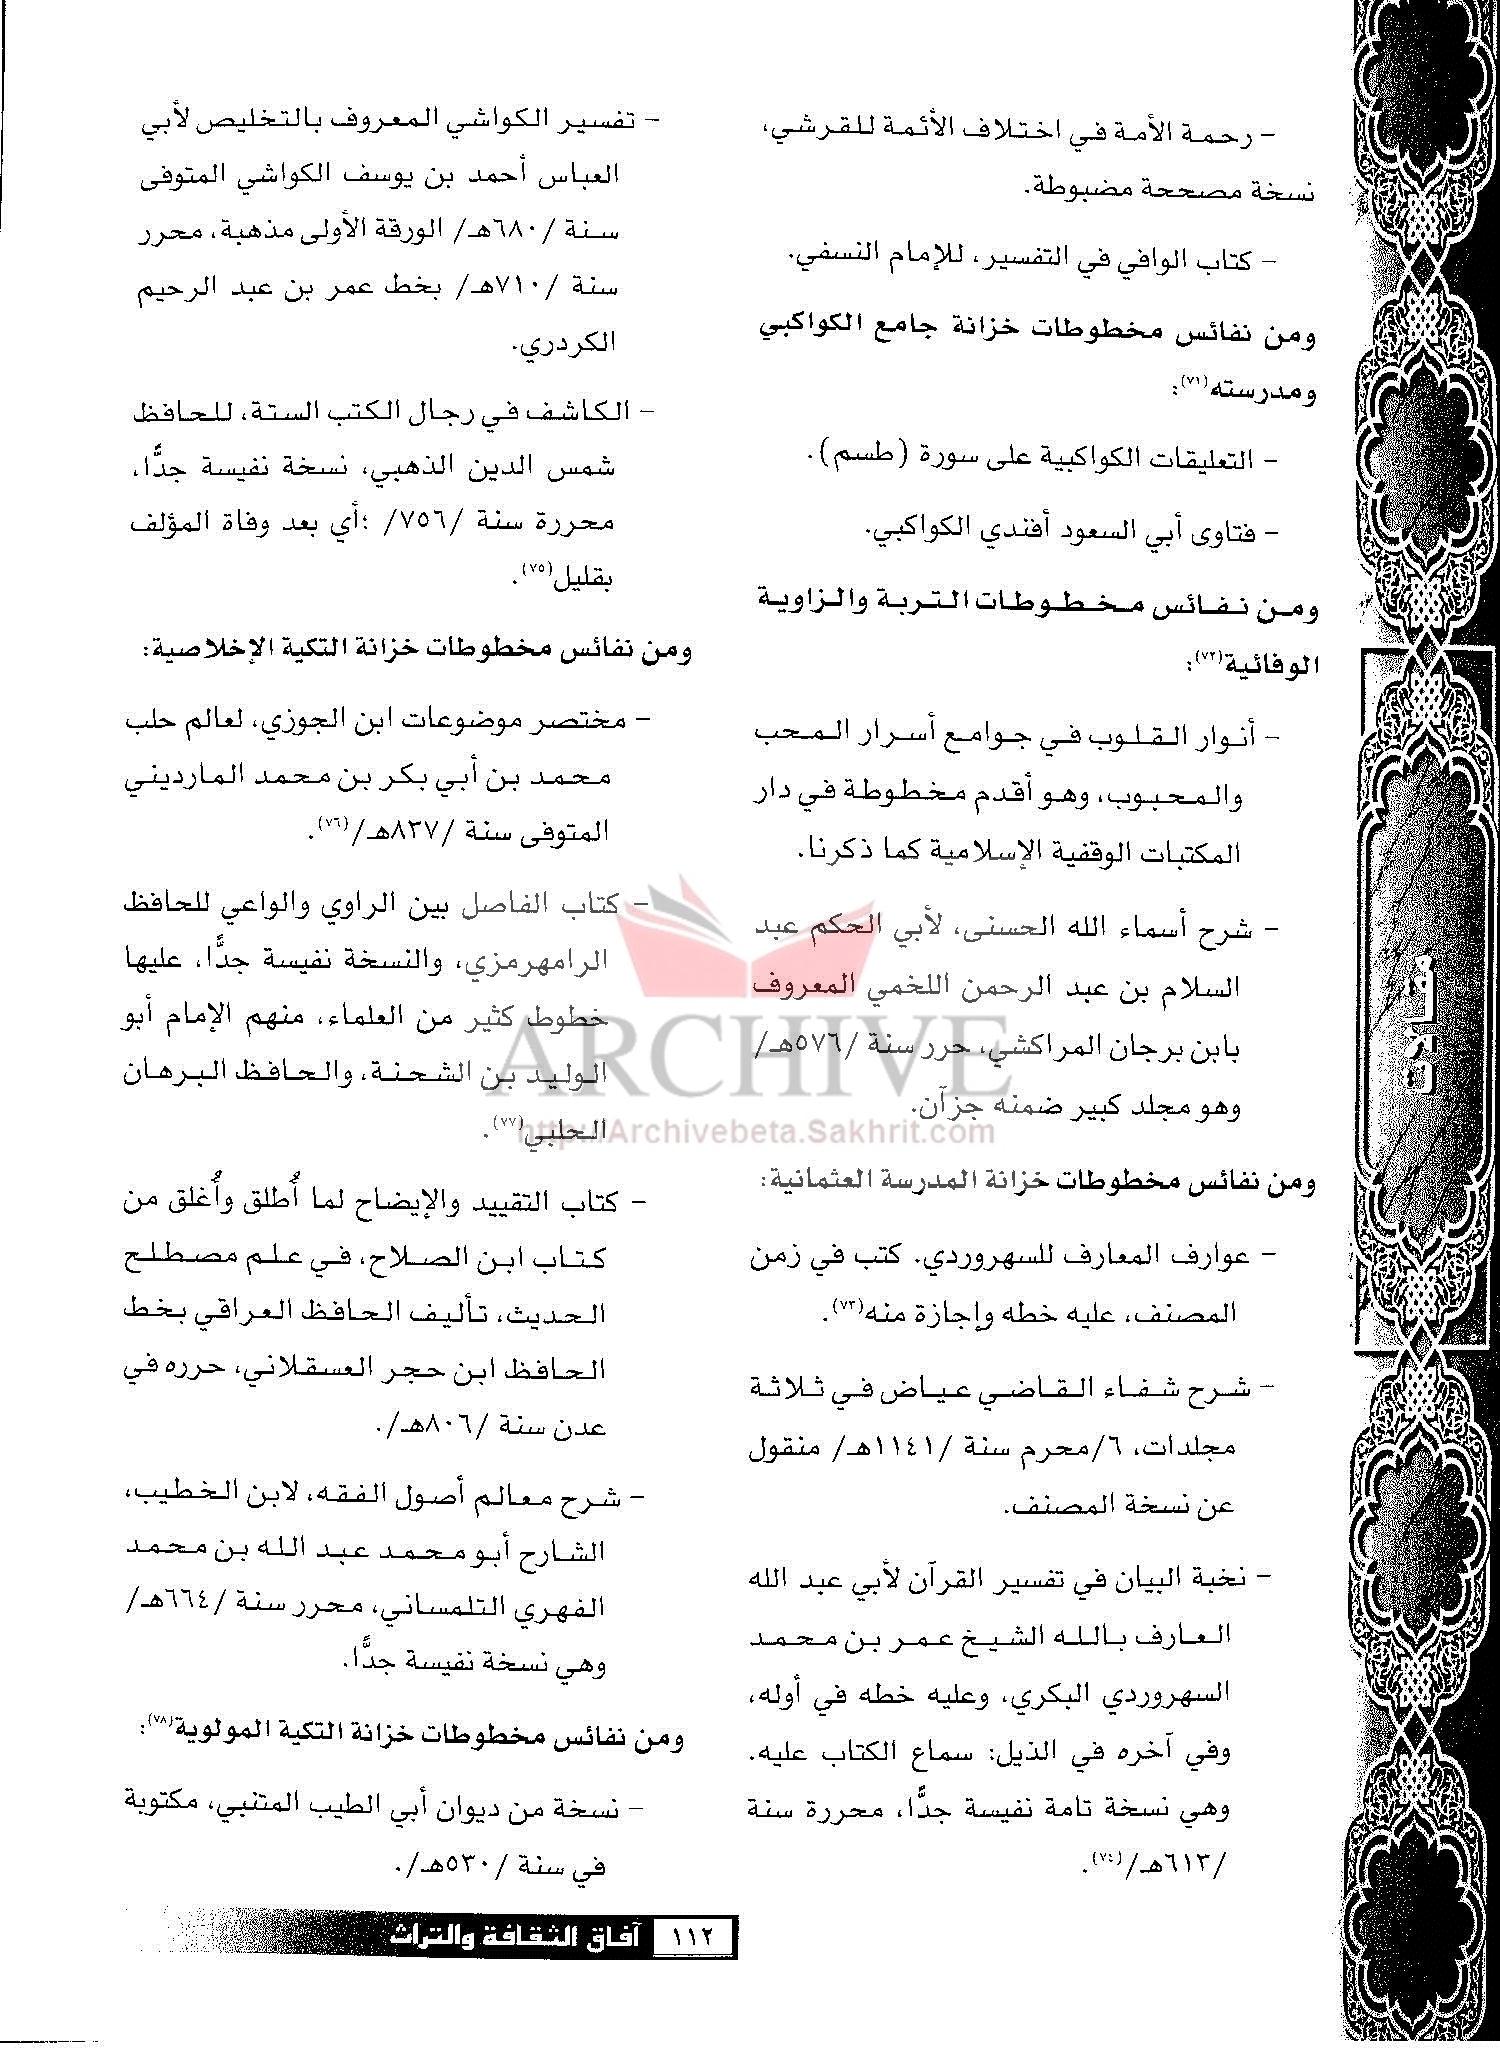 - رحمة الأمة في اختلاف الأئمة للقرشي،
نسخة مصححة مضبوطة.
- كتاب الوافي في التفسير، للإمام النسفي.
ومن نفائس مخطوطات خزانة جامع الكواكبي
ومدرسته(٧١):
- التعليقات الكواكبية على سورة (طسم).
- فتاوى أبي السعود أفندي الكواكبي.
ومن نفائس مخطوطات التربة والزاوية
الوفائية(٧٢):
- أنوار القلوب في جوامع أسرار المحب
والمحبوب، وهو أقدم مخطوطة في دار
المكتبات الوقفية الإسلامية كما ذكرنا.
- شرح أسماء الله الحسنى، لأبي الحكم عبد
السلام بن عبد الرحمن اللخمي المعروف
بابن برجان المراكشي، حرر سنة /٥٧٦هـ/
وهو مجلد كبير ضمنه جزآن.
ومن نفائس مخطوطات خزانة المدرسة العثمانية:
- عوارف المعارف للسهروردي. كتب في زمن
المصنف، عليه خطه وإجازة منه(٧٣).
- شرح شفاء القاضي عياض في ثلاثة
مجلدات، ٦/محرم سنة /١١٤١هـ/ منقول
عن نسخة المصنف.
- نخبة البيان في تفسير القرآن لأبي عبد الله
العارف بالله الشيخ عمر بن محمد
السهروردي البكري، وعليه خطه في أوله،
وفي آخره في الذيل: سماع الكتاب عليه.
وهي نسخة تامة نفيسة جدًّا، محررة سنة
/٦١٣هـ/(٧٤).
- تفسير الكواشي المعروف بالتخليص لأبي
العباس أحمد بن يوسف الكواشي المتوفى
سنة /٦٨٠هـ/ الورقة الأولى مذهبة، محرر
سنة /٧١٠هـ/ بخط عمر بن عبد الرحيم
الكردري.
- الكاشف في رجال الكتب الستة، للحافظ
شمس الدين الذهبي، نسخة نفيسة جدًّا،
محررة سنة /٧٥٦/ ؛أي بعد وفاة المؤلف
بقليل(٧٥).
ومن نفائس مخطوطات خزانة التكية الإخلاصية:
- مختصر موضوعات ابن الجوزي، لعالم حلب
محمد بن أبي بكر بن محمد المارديني
المتوفى سنة /٨٣٧هـ/(٧٦).
- كتاب الفاصل بين الراوي والواعي للحافظ
الرامهرمزي، والنسخة نفيسة جدًّا، عليها
خطوط كثير من العلماء، منهم الإمام أبو
الوليد بن الشحنة، والحافظ البرهان
الحلبي(٧٧).
- كتاب التقييد والإيضاح لما أُطلق وأُغلق من
كتاب ابن الصلاح، في علم مصطلح
الحديث، تأليف الحافظ العراقي بخط
الحافظ ابن حجر العسقلاني، حرره في
عدن سنة /٨٠٦هـ/.
- شرح معالم أصول الفقه، لابن الخطيب،
الشارح أبو محمد عبد الله بن محمد
الفهري التلمساني، محرر سنة /٦٦٤هـ/
وهي نسخة نفيسة جدًّا.
ومن نفائس مخطوطات خزانة التكية المولوية(٧٨):
- نسخة من ديوان أبي الطيب المتنبي، مكتوبة
في سنة /٥٣٠هـ/.
مقالات
ARCHIVE
http://Archivebeta.Sakhrit.com
١١٢ آفاق الثقافة والتراث